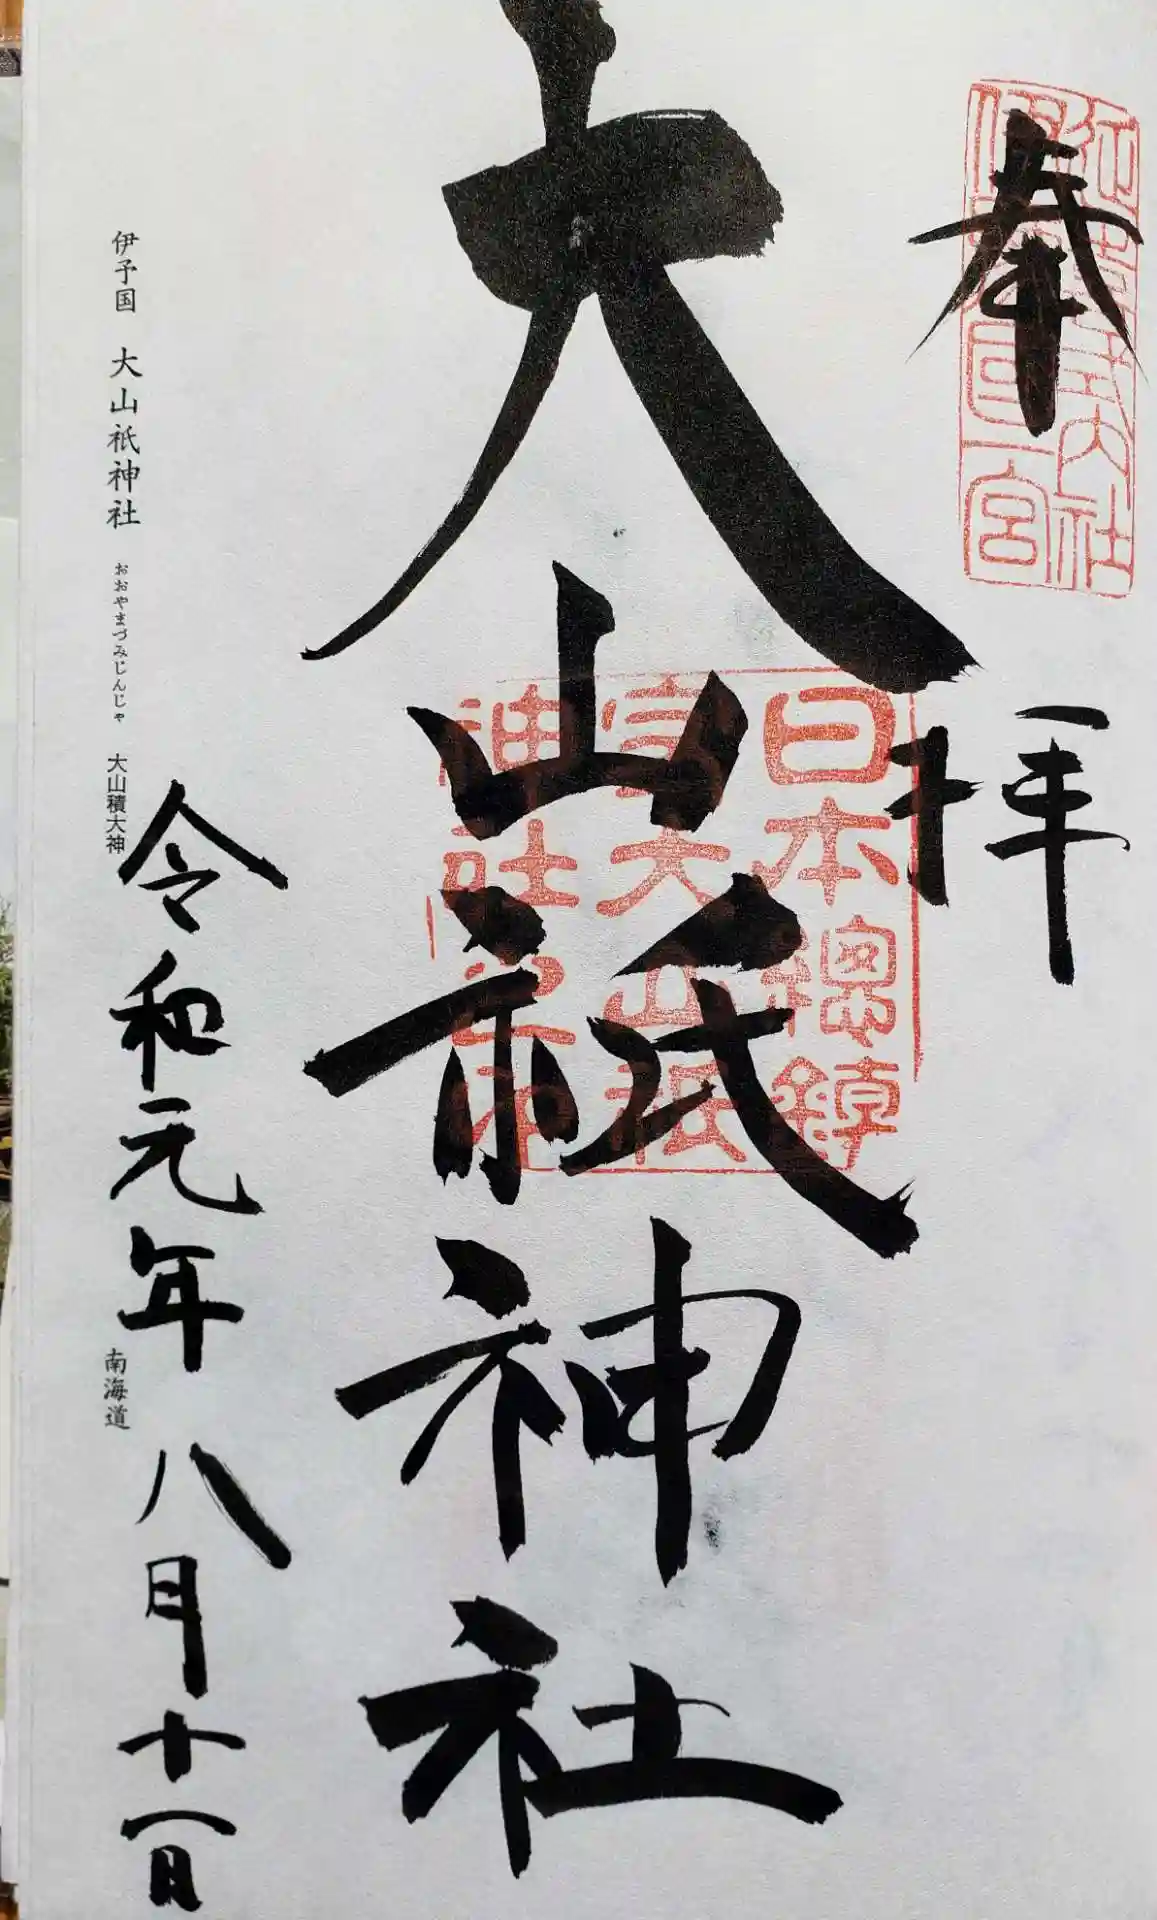 奉拝
延喜式内社
伊豫国一宮
大山祇神社
日本總鎮
守大山祇
神社
令和元年八月十一日
伊予国 大山祇神社 おおやまづみじんじゃ 大山積大神 南海道